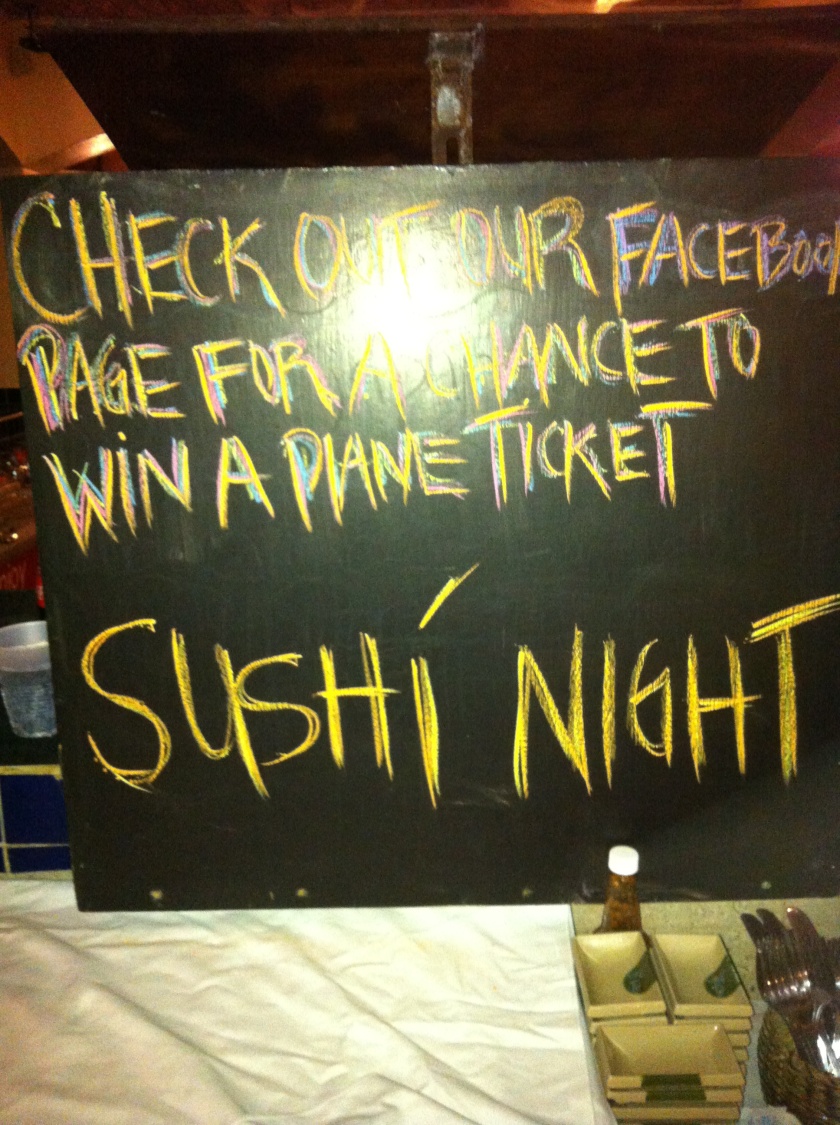 CHECK OUT OUR FACEBOOK
PAGE FOR A CHANCE TO
WIN A PLANE TICKET
SUSHÍ NIGHT